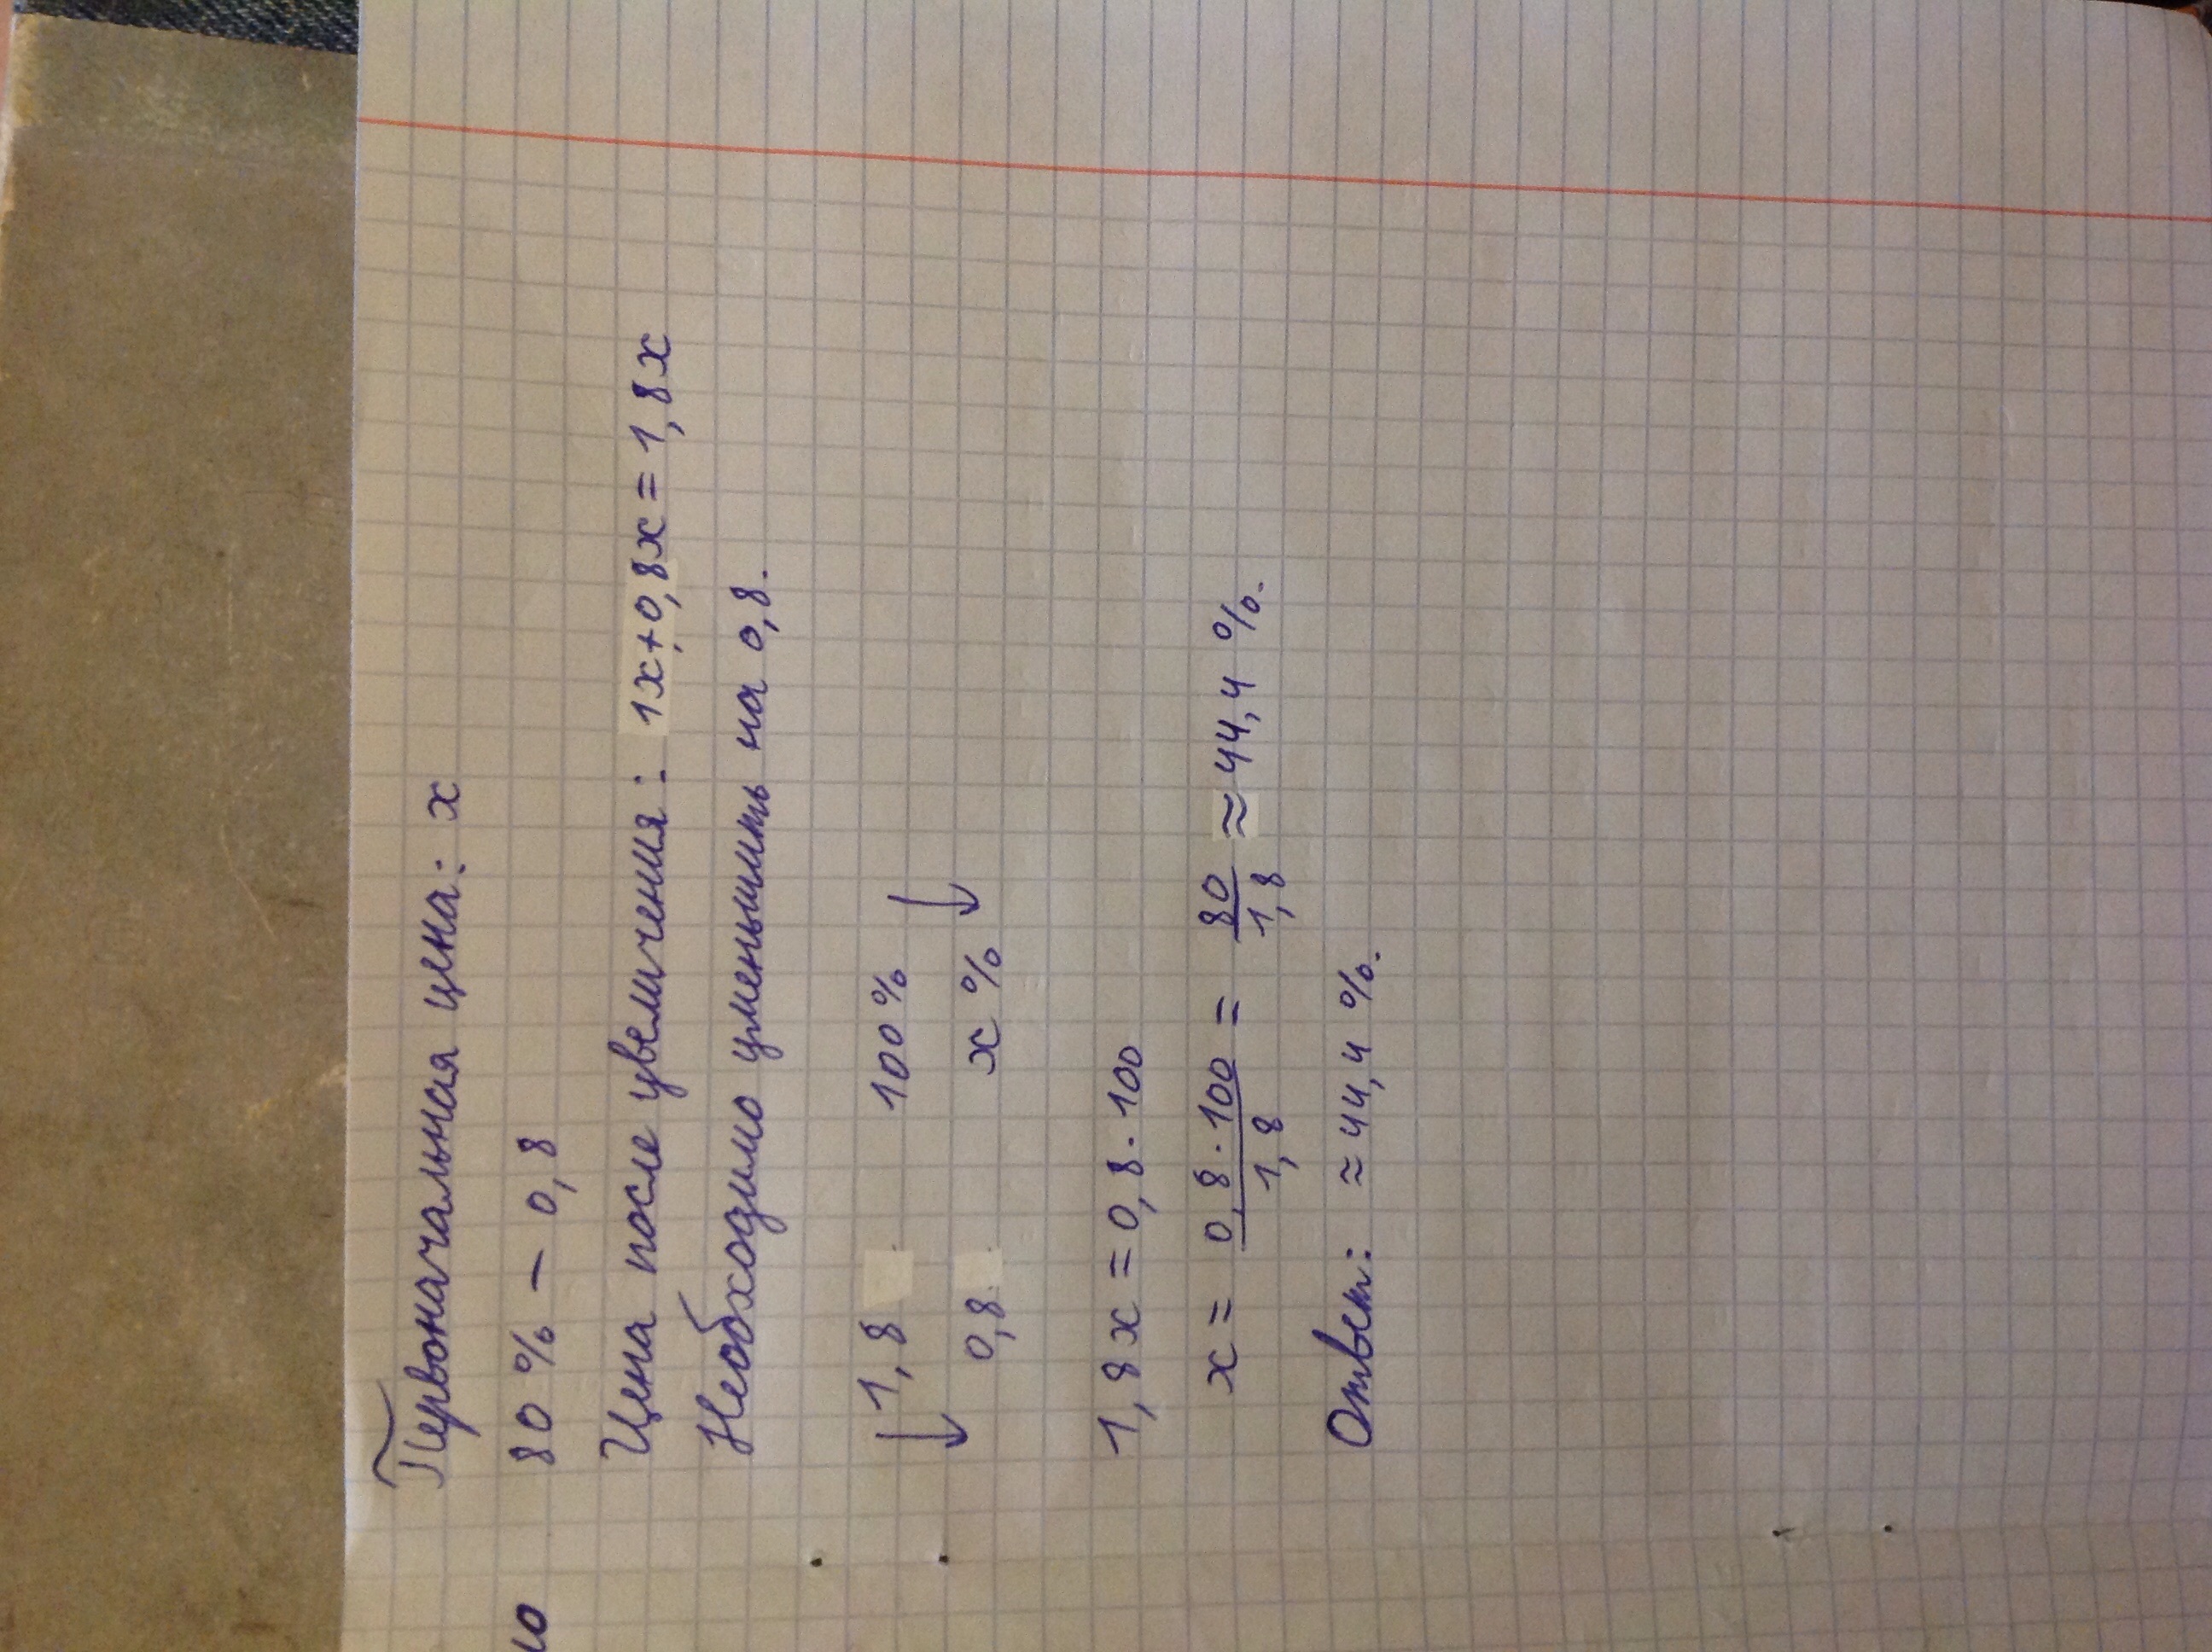 Первоначальная цена: x
80 % – 0,8
Цена после увеличения: 1x+0,8x = 1,8x
Необходимо уменьшить на 0,8.
↓ 1,8 100% ↓
0,8 x %
1,8x = 0,8 · 100
x = 0,8 · 100 / 1,8 = 80 / 1,8 ≈ 44,4 %.
Ответ: ≈ 44,4 %.